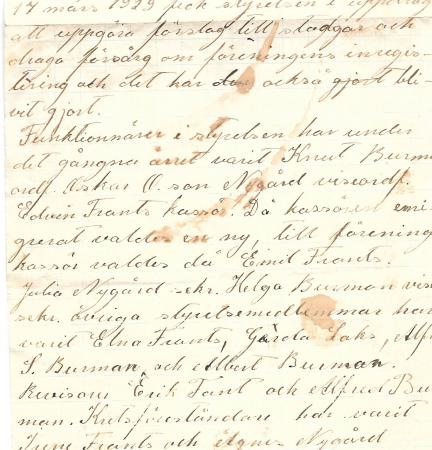 17 mars 1929 fick styrelsen i uppdrag
att uppgöra förslag till stadgar och
draga försorg om föreningens inregis-
tiring och det har den också gjort bli-
vit gjort.
Funktionnärer i styrelsen har under
det gångna årret varit Knut Burman
ordf. Oskar O. son Nygård viseordf.
Edvin Frants kassör. Då kassören emi-
grerat valdes en ny, till förening
kassör valdes då Emil Frants.
Julia Nygård sekr. Helga Burman vise
sekr. övriga styrelsemedlemmar har
varit Elna Frants, Gärda Laks, Alf
S. Burman och Albert Burman.
Revisorer Erik Fant och Alfred Bur
man. Kretsföreståndare har varit
Irene Frants och Agnes Nygård